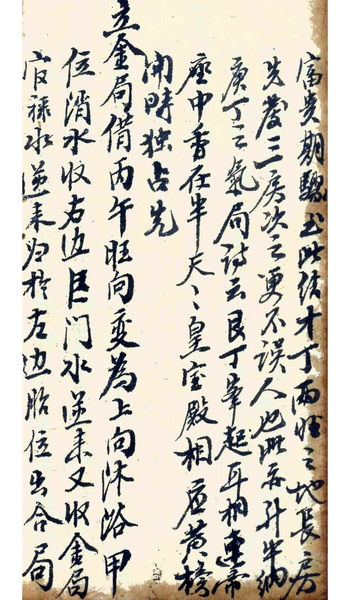 富贵期驗也此结才丁两旺之地長房
先發三房次之更不误人也此each升牛纳
庚丁之氣局诗云艮丁峯起耳相連帝
座中香在半天天皇宝殿相居黄榜
開時独占先
立金局借丙午旺向变為上向沐浴甲
位消水收右边巨门水逆来又收金局
官禄水逆来归於左边胎位出合局